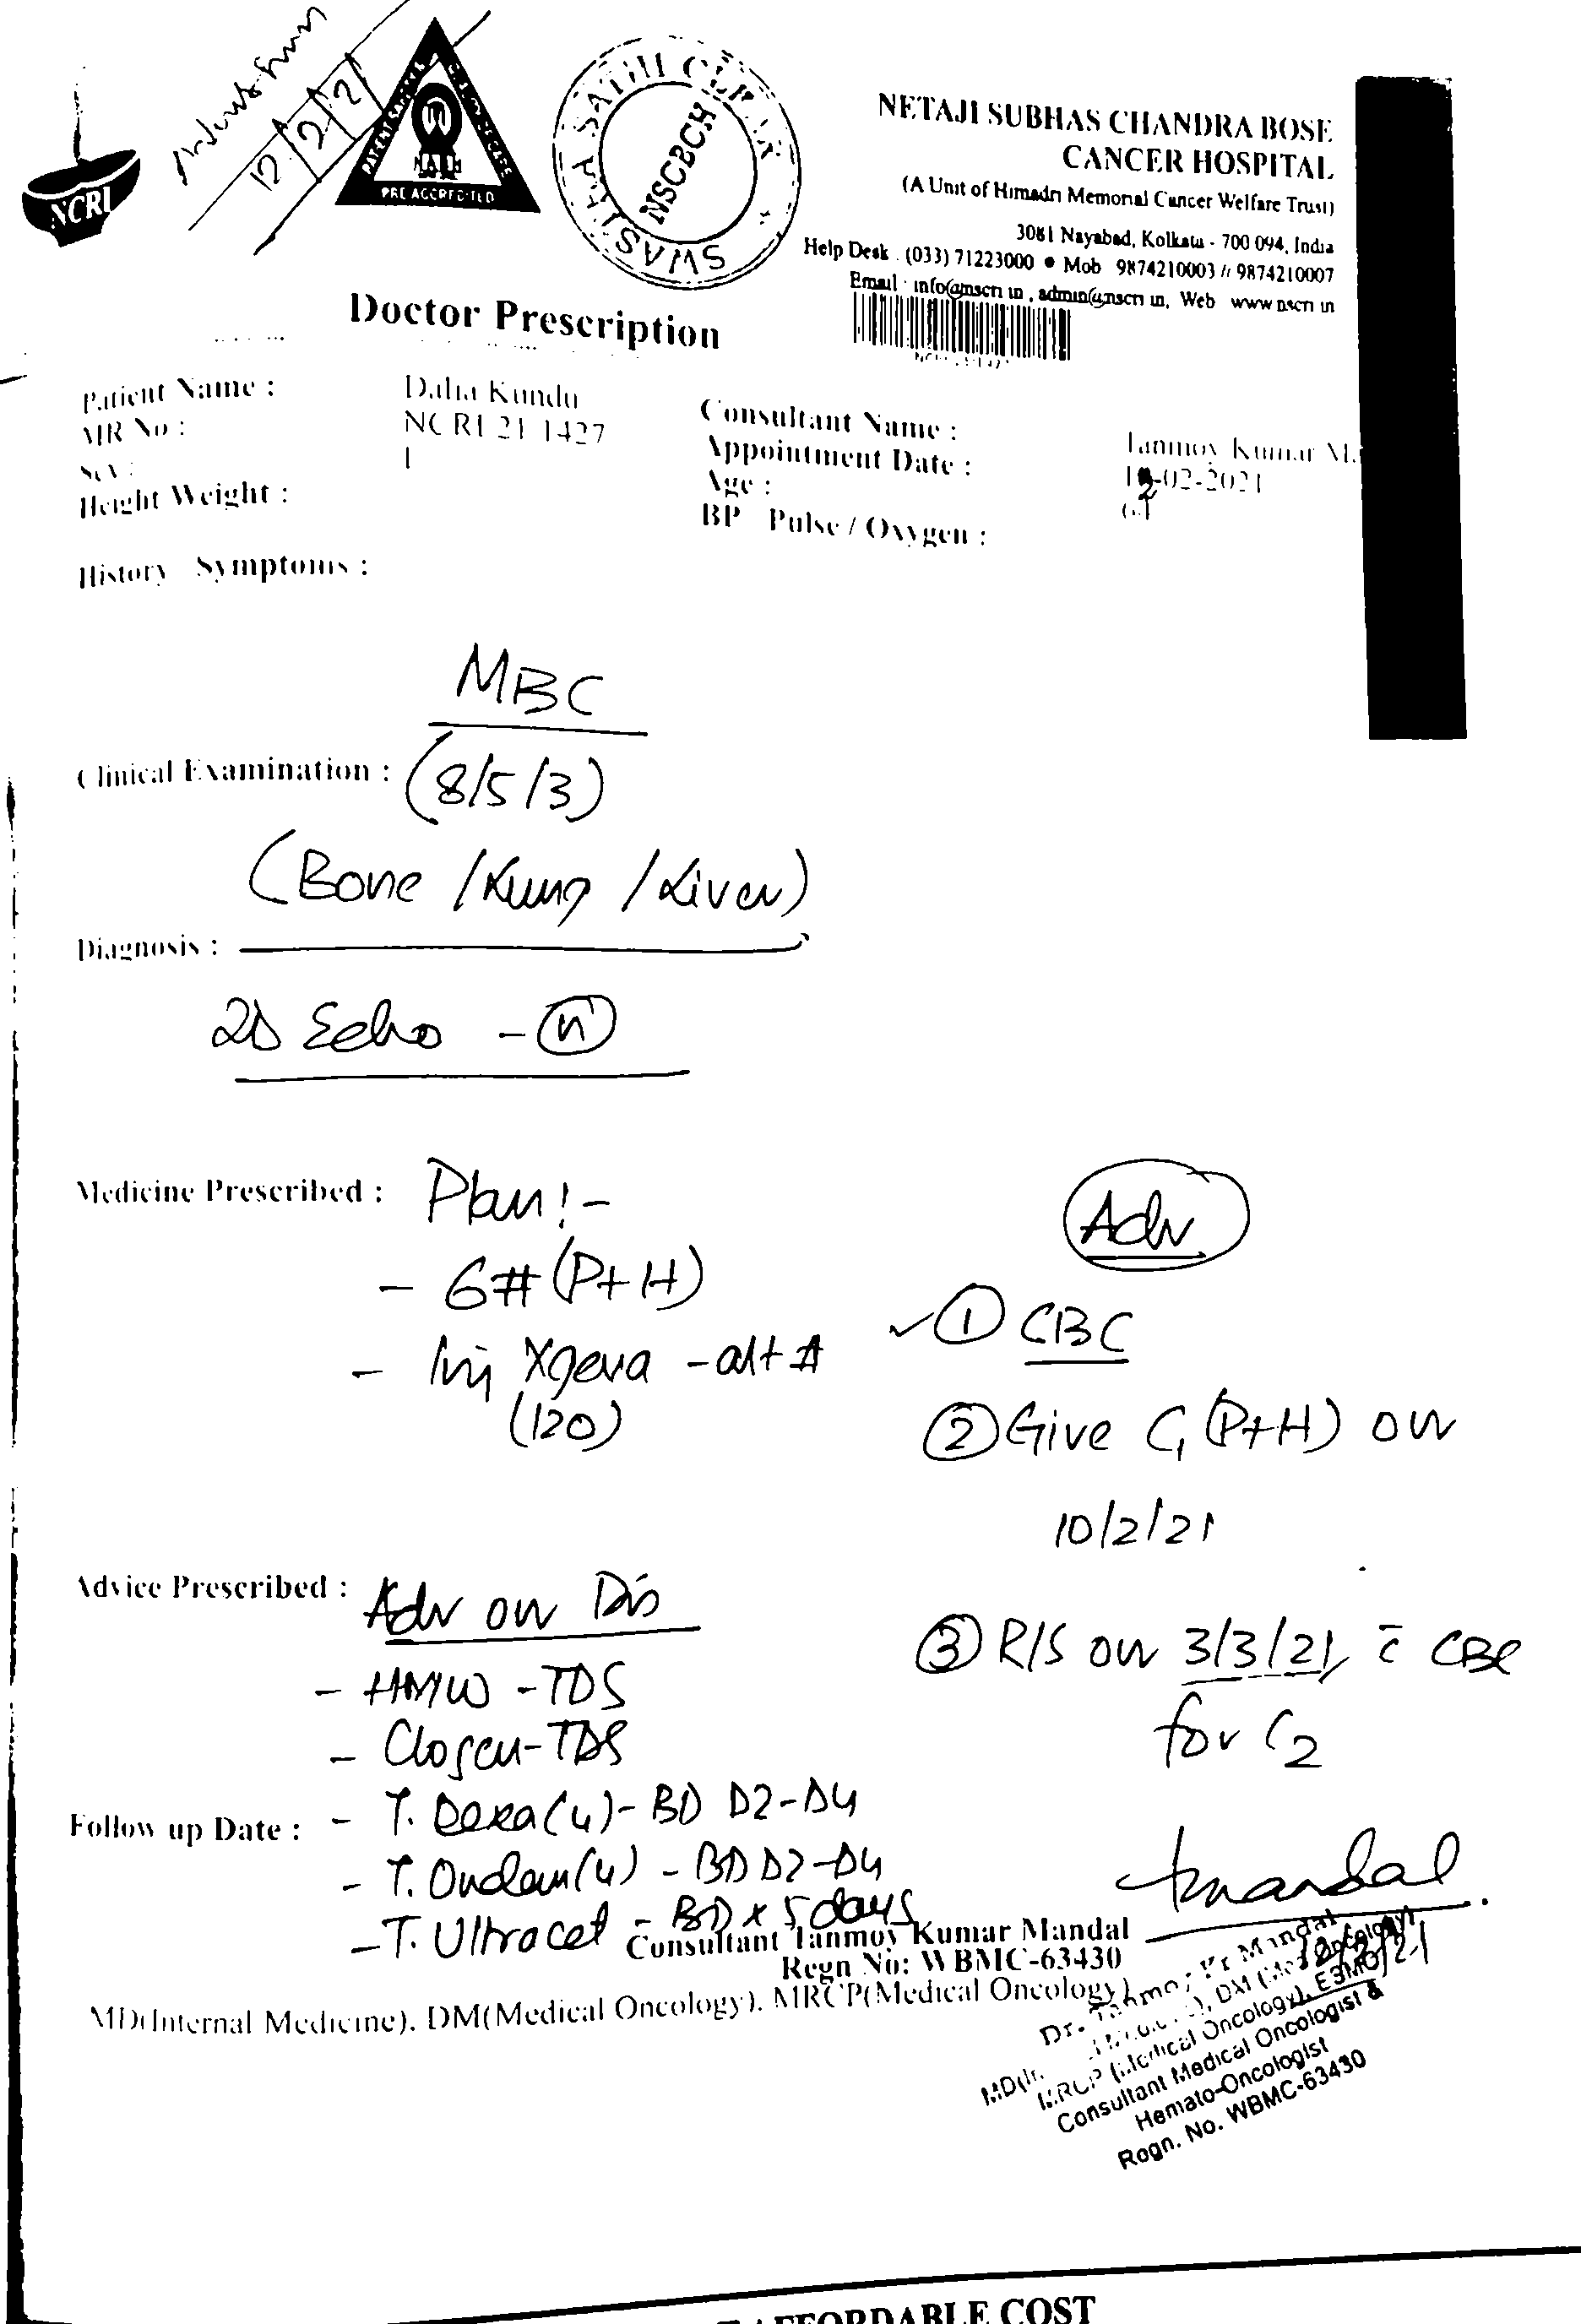 12/2/21
NCRI
PRE ACCREDITED
SWASTHA SATHI
NSCBCH
NETAJI SUBHAS CHANDRA BOSE
CANCER HOSPITAL
(A Unit of Himadri Memorial Cancer Welfare Trust)
3081 Nayabad, Kolkata - 700 094, India
Help Desk . (033) 71223000 ● Mob 9874210003 // 9874210007
Email : info@nscri in , admin@nscri in, Web www nscri in
Doctor Prescription
Patient Name : Dalia Kundu
MR No : NCRI 21 1427
Sex :
Height Weight :
Consultant Name : Tanmoy Kumar M
Appointment Date : 12-02-2021
Age :
BP Pulse / Oxygen :
History Symptoms :
MBC
Clinical Examination : (8/5/3)
(Bone / Lung / Liver)
Diagnosis :
2D Echo - (N)
Medicine Prescribed : Plan :-
- 6# (P+H)
- Inj Xgeva - alt #
(120)
Adv
① CBC
② Give C1 (P+H) on
10/2/21
③ R/S on 3/3/21, c̄ CBC
for C2
Advice Prescribed : Adv on Dis
- HMW - TDS
- Closen - TDS
Follow up Date : - T. Dexa (4) - BD D2-D4
- T. Ondem (4) - BD D2-D4
- T. Ultracet - BD x 5 days
Tmandal
12/2/21
Consultant Tanmoy Kumar Mandal
Regn No: WBMC-63430
MD(Internal Medicine), DM(Medical Oncology), MRCP(Medical Oncology)
Dr. Tanmoy Kr Mandal
MRCP (Medical Oncology), ESMO
Consultant Medical Oncologist &
Hemato-Oncologist
Regn. No. WBMC-63430
AFFORDABLE COST